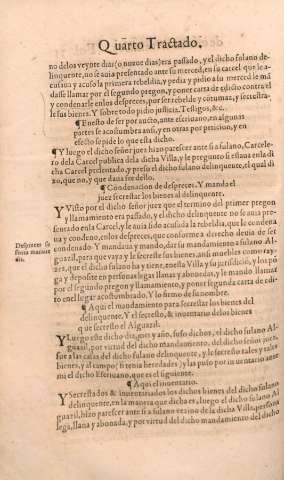 Quarto Tractado.
no delos veynte dias (o nueue dias) era passado, y el dicho fulano de-
linquente, no se auia presentado ante su merced, en su carcel que le a-
cusaua y acuso la primera rebeldia, y pedia y pidio a su merced le mã
dasse llamar por el segundo pregon, y poner carta de edicto contra el
y condenarle en los despreces, por ser rebelde y cõtumas, y sectestra-
le sus bienes. Y sobre todo pidio justicia. Testigos, &c.
¶ En esto de ser por aucto, ante escriuano, en algunas
partes se acostumbra ansi, y en otras por peticion, y en
efecto se pide lo que esta dicho.
Y luego el dicho señor juez hizo parescer ante si a fulano, Carcele-
ro dela Carcel publica dela dicha Villa, y le pregunto si estaua enla di
cha Carcel presentado, y preso el dicho fulano delinquente, el qual di
xo, que no, y que daua fee dello.
¶ Condenacion de despreces. Y manda el
juez secrestar los bienes al delinquente.
Y Visto por el dicho señor juez que el termino del primer pregon
y llamamiento era passado, y el dicho delinquente no se auia pre-
sentado enla Carcel, y le auia sido acusada la rebeldia, que condena
ua y condeno, enlos despreces, que conforme a derecho deuia de ser
condenado Y mandaua y mando, dar su mandamiento a fulano Al-
guazil, para que vaya y le secreste sus bienes, ansi muebles como ray-
zes, que el dicho fulano ha y tiene, en esta Villa y su jurisdicion, y los põ
ga y deposite en personas legas llanas y abonadas, y le mando llamar
por el segundo pregon y llamamiento, y poner segunda carta de edi-
cto en el lugar acostumbrado. Y lo firmo de su nombre.
Despreces se
¶ Aqui el mandamiento para secrestar los bienes del
delinquente. Y el secresto, & inuentario delos bienes
que secresto el Alguazil.
Y Luego este dicho dia, mes y año, suso dichos, el dicho fulano Al-
guazil, por virtud del dicho mandamiento, del dicho señor juez,
fue a las casas del dicho fulano delinquente, y le secresto tales y tales
bienes, y al campo (si tenia heredades) y las puso por inuentario ante
mi el dicho Escriuano, que es el siguiente.
¶ Aqui el inuentario.
Y Secrestados & inuentariados los dichos bienes del dicho fulano
delinquente, en la manera que dicha es, luego el dicho fulano Al-
guazil, hizo parescer ante si a fulano vezino de la dicha Villa, persona
lega, llana y abonada, y por virtud del dicho mandamiento del dicho